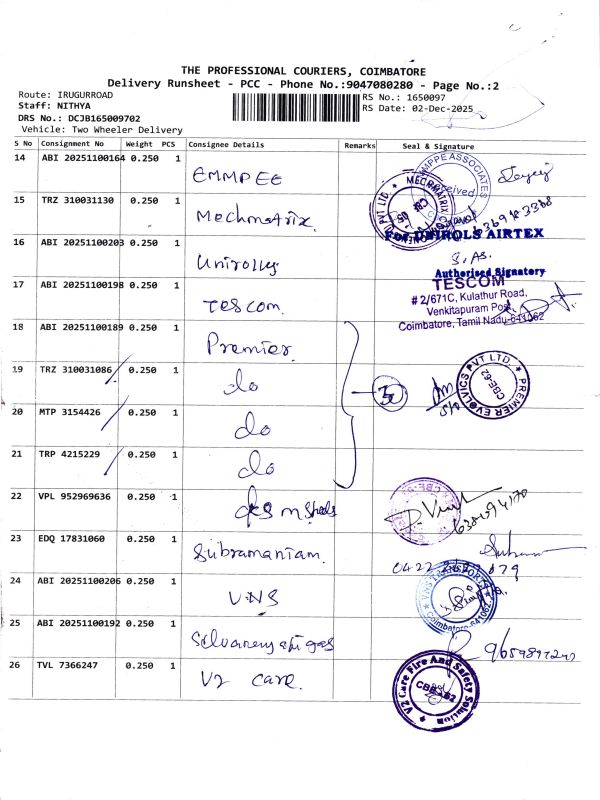 THE PROFESSIONAL COURIERS, COIMBATORE
Delivery Runsheet - PCC - Phone No.:9047080280 - Page No.:2
Route: IRUGURROAD
Staff: NITHYA
DRS No.: DCJB165009702
Vehicle: Two Wheeler Delivery
RS No.: 1650097
RS Date: 02-Dec-2025
S No Consignment No Weight PCS Consignee Details Remarks Seal & Signature
14 ABI 20251100164 0.250 1 EMMPEE
15 TRZ 310031130 0.250 1 Mechmatrix
16 ABI 20251100203 0.250 1 Unirolls
FOR UNIROLS AIRTEX
Authorised Signatory
17 ABI 20251100198 0.250 1 Tescom
TESCOM
# 2/671C, Kulathur Road,
Venkitapuram Post,
Coimbatore, Tamil Nadu-641062
18 ABI 20251100189 0.250 1 Premier
19 TRZ 310031086 0.250 1 do
PREMIER EVOLVICS PVT LTD. CBE-62
20 MTP 3154426 0.250 1 do
21 TRP 4215229 0.250 1 do
22 VPL 952969636 0.250 1
23 EDQ 17831060 0.250 1 Subramaniam
24 ABI 20251100206 0.250 1 VNS
VNS TRANSPORTS Coimbatore-641062
25 ABI 20251100192 0.250 1
26 TVL 7366247 0.250 1 V2 care
V2 Care Fire And Safety Solution